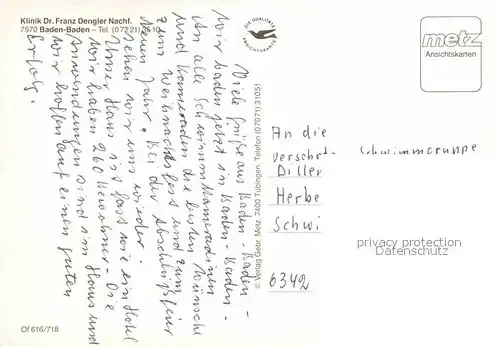 Klinik Dr. Franz Dengler Nachf.
7570 Baden-Baden – Tel. (07221) 3510
Viele Grüße aus Baden - Baden -
Wir baden jetzt in Baden - Baden.
An alle Schwimmkameradinnen
und Kameraden die besten Wünsche
zum Weihnachtsfest und zum
Neuen Jahr. Bei der Abschlußfeier
sehen wir uns wieder.
Unser Haus ist fast wie ein Hotel
Wir haben 260 Bewohner - Die
Anwendungen sind im Haus und
wir hoffen auf einen guten
Erfolg.
Of 616/718
DIE QUALITÄTS
ANSICHTSKARTEN
© Verlag Gebr. Metz, 7400 Tübingen Telefon (07071) 31051
metz
Ansichtskarten
An die
Versehrt- Schwimmgruppe
Diller
Herbo
Schwi
6342
privacy protection
Datenschutz